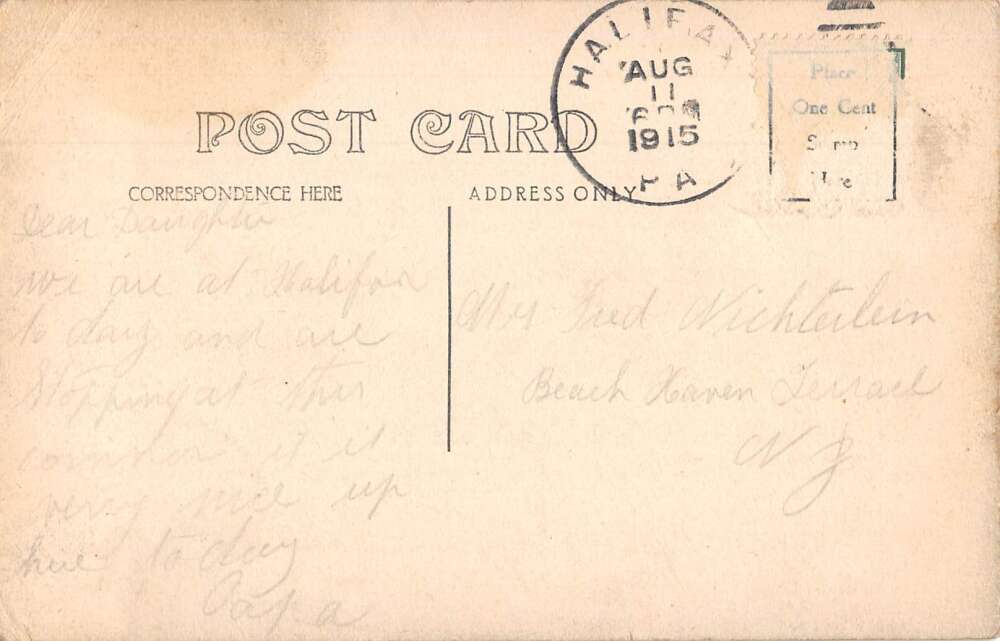 HALIFAX
AUG
11
1915
PA
Place
One Cent
Stamp
Here
POST CARD
CORRESPONDENCE HERE
ADDRESS ONLY
Dear Daughter
we are at Halifax
to day and are
Stopping at this
it is
very nice up
here to day
Papa
Mrs Fred Nichterlein
Beach Haven Terrace
N J